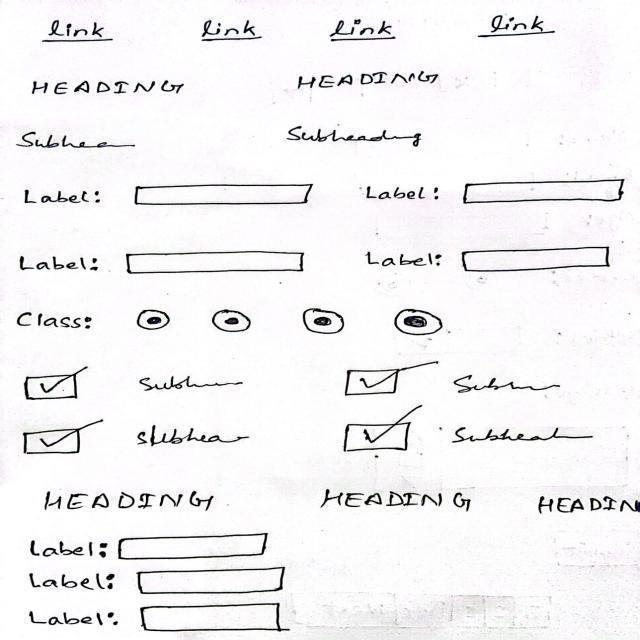 link link link link
HEADING HEADING
Subhea Subheading
Label: Label:
Label: Label:
Class:
Subh Subh
Subhea Subhea
HEADING HEADING HEADIN
Label:
Label:
Label: